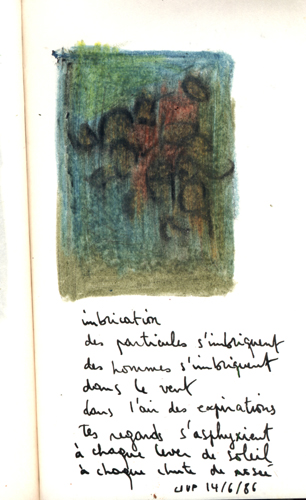 imbrication
des particules s'imbriquent
des hommes s'imbriquent
dans le vent
dans l'air des expirations
tes regards s'asphyxient
à chaque lever de soleil
à chaque chute de rosée
14/6/86